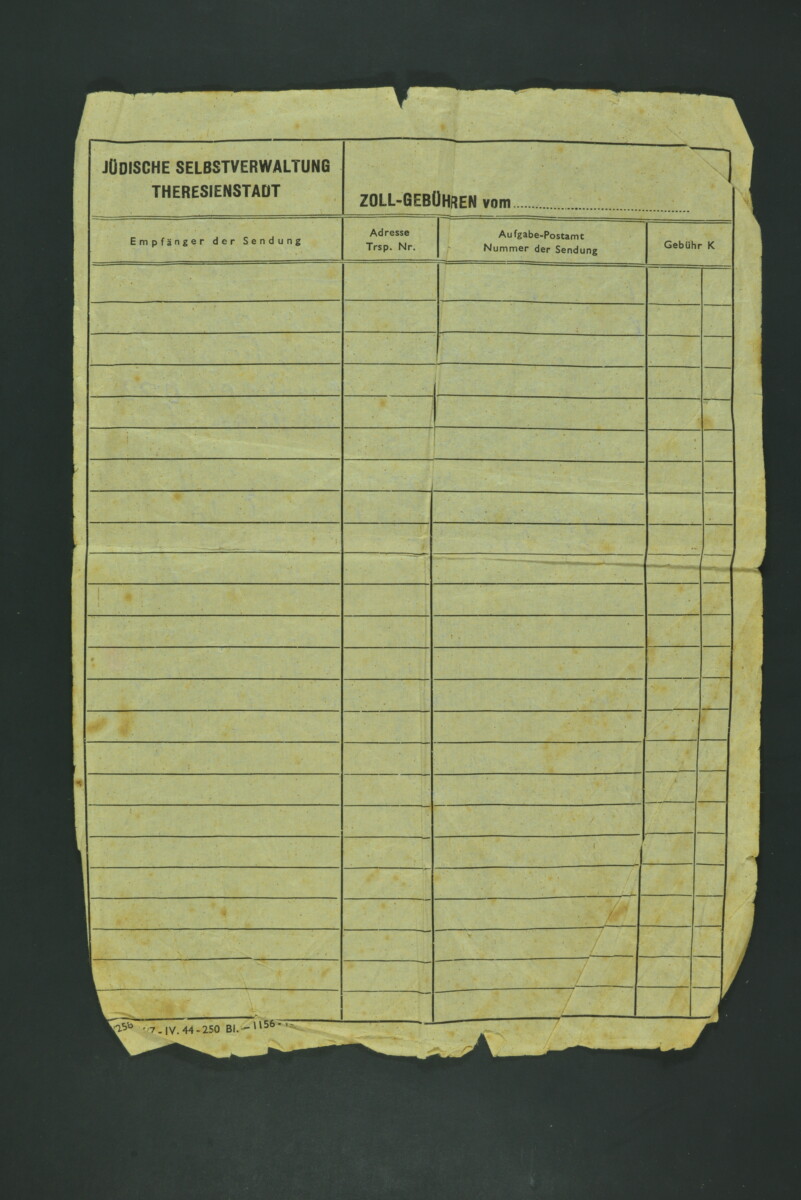 JÜDISCHE SELBSTVERWALTUNG
THERESIENSTADT
ZOLL-GEBÜHREN vom
Empfänger der Sendung
Adresse
Trsp. Nr.
Aufgabe-Postamt
Nummer der Sendung
Gebühr K
256 7-IV. 44-250 Bl. - 1156-